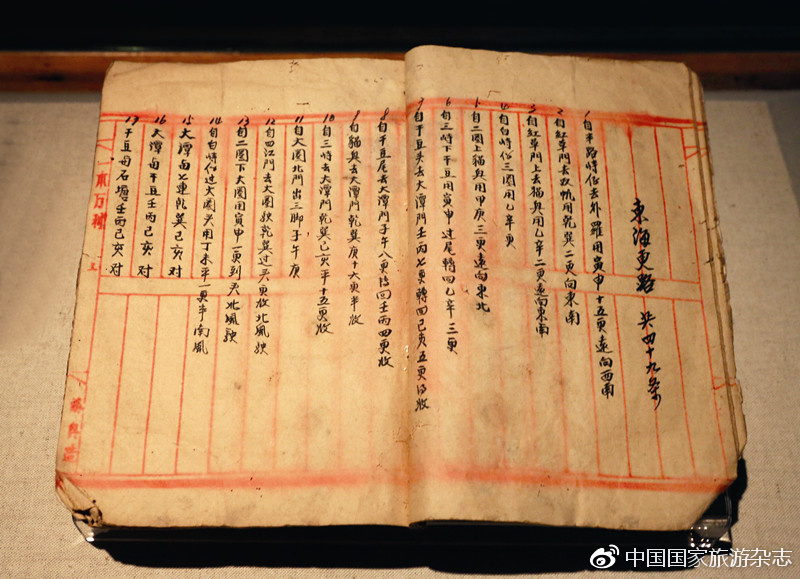 東海更路 共四十九条
1自半路峙仔去外羅用寅申十五更遠向西南
2自紅草門去双帆用乾巽二更向東南
3自紅草門上去貓興用乙辛二更遠向東南
4自白峙仔三圈用乙辛更
5自二圈上貓興用甲庚三更遠向東北
6自三峙下干豆用寅申过尾轉回乙辛三更
7自干豆头去大潭門壬丙七更轉回己亥五更收
8自干豆尾去大潭門子午八更轉回壬丙四更收
9自貓興去大潭門乾巽庚十六更半收
10自三峙去大潭門乾巽己亥平十五更收
11自大圈北門出三脚子午庚
12自四江門去大圈乾巽过头更收北風
13自二圈下大圈用寅申一更到头北風
14自白峙仔过大圈头用丁未平一更半南風
15大潭与七連乾巽己亥对
16大潭与干豆壬丙己亥对
17干豆与石塘壬丙己亥对
一本万利
上
中国国家旅游杂志